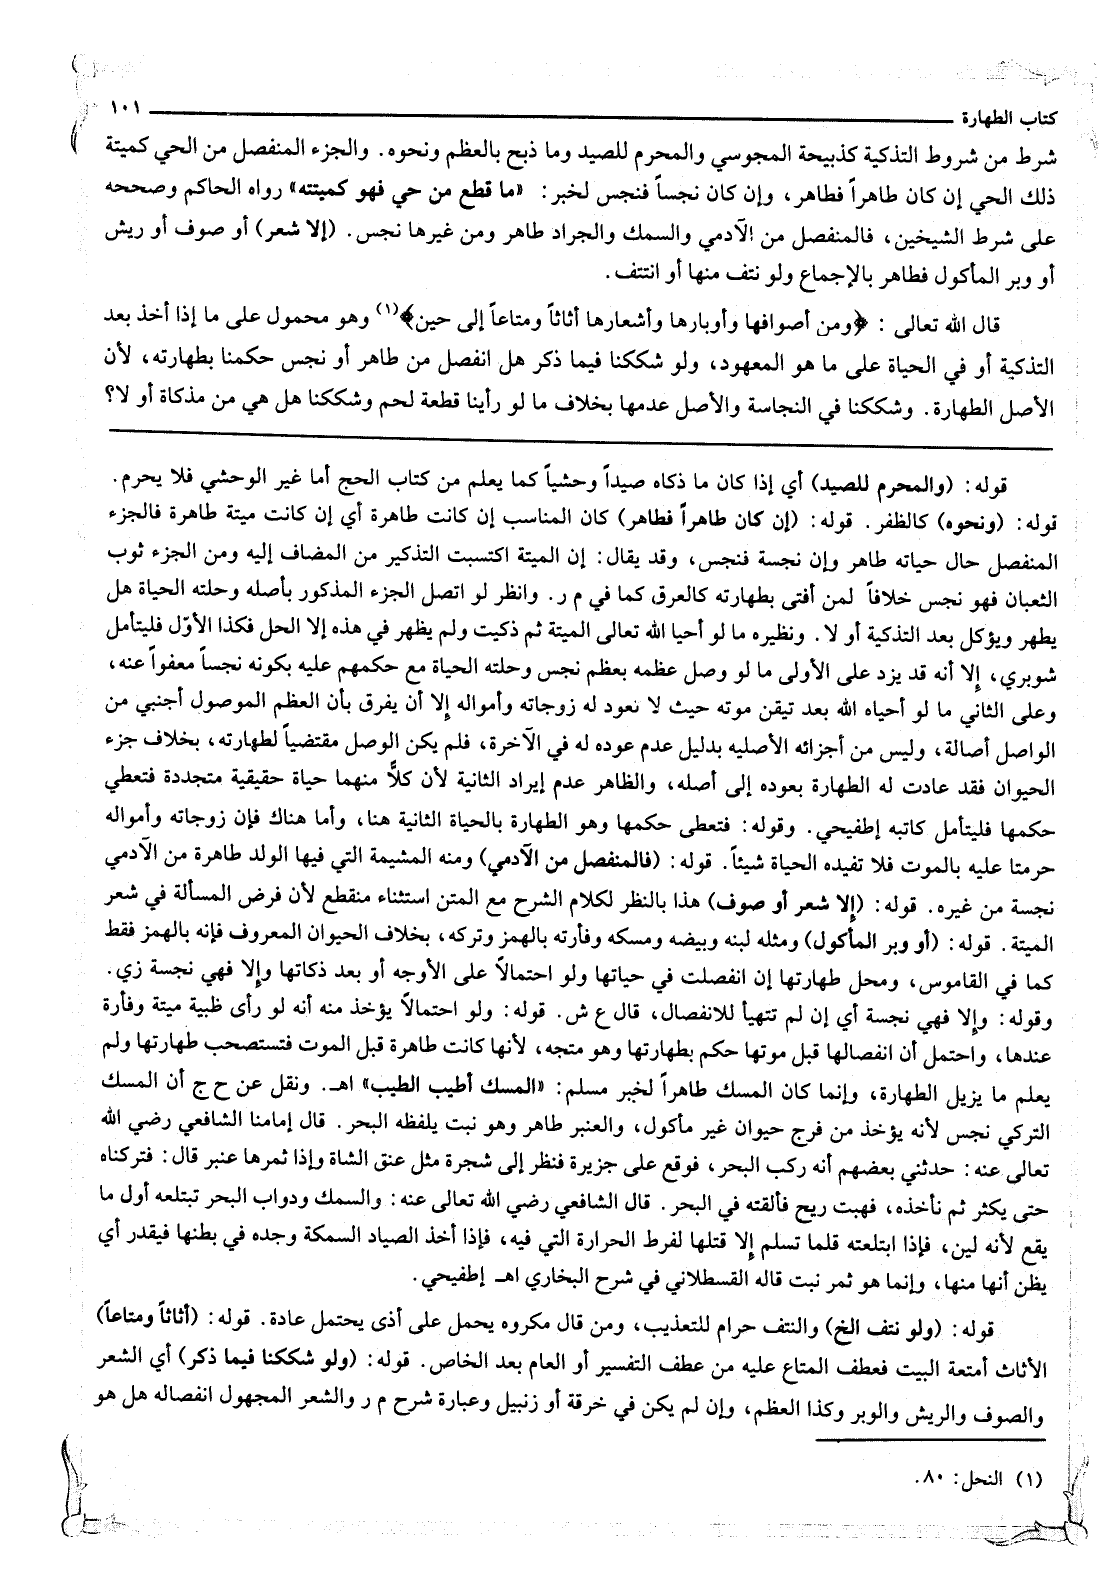 كتاب الطهارة ١٠١
شرط من شروط التذكية كذبيحة المجوسي والمحرم للصيد وما ذبح بالعظم ونحوه. والجزء المنفصل من الحي كميتة
ذلك الحي إن كان طاهراً فطاهر، وإن كان نجساً فنجس لخبر: «ما قطع من حي فهو كميتته» رواه الحاكم وصححه
على شرط الشيخين، فالمنفصل من الآدمي والسمك والجراد طاهر ومن غيرها نجس. (إلا شعر) أو صوف أو ريش
أو وبر المأكول فطاهر بالإجماع ولو نتف منها أو انتتف.
قال الله تعالى: ﴿ومن أصوافها وأوبارها وأشعارها أثاثاً ومتاعاً إلى حين﴾(١) وهو محمول على ما إذا أخذ بعد
التذكية أو في الحياة على ما هو المعهود، ولو شككنا فيما ذكر هل انفصل من طاهر أو نجس حكمنا بطهارته، لأن
الأصل الطهارة. وشككنا في النجاسة والأصل عدمها بخلاف ما لو رأينا قطعة لحم وشككنا هل هي من مذكاة أو لا؟
قوله: (والمحرم للصيد) أي إذا كان ما ذكاه صيداً وحشياً كما يعلم من كتاب الحج أما غير الوحشي فلا يحرم.
قوله: (ونحوه) كالظفر. قوله: (إن كان طاهراً فطاهر) كان المناسب إن كانت طاهرة أي إن كانت ميتة طاهرة فالجزء
المنفصل حال حياته طاهر وإن نجسة فنجس، وقد يقال: إن الميتة اكتسبت التذكير من المضاف إليه ومن الجزء ثوب
الثعبان فهو نجس خلافاً لمن أفتى بطهارته كالعرق كما في م ر. وانظر لو اتصل الجزء المذكور بأصله وحلته الحياة هل
يطهر ويؤكل بعد التذكية أو لا. ونظيره ما لو أحيا الله تعالى الميتة ثم ذكيت ولم يظهر في هذه إلا الحل فكذا الأوّل فليتأمل
شوبري، إلا أنه قد يزد على الأولى ما لو وصل عظمه بعظم نجس وحلته الحياة مع حكمهم عليه بكونه نجساً معفواً عنه،
وعلى الثاني ما لو أحياه الله بعد تيقن موته حيث لا نعود له زوجاته وأمواله إلا أن يفرق بأن العظم الموصول أجنبي من
الواصل أصالة، وليس من أجزائه الأصليه بدليل عدم عوده له في الآخرة، فلم يكن الوصل مقتضياً لطهارته، بخلاف جزء
الحيوان فقد عادت له الطهارة بعوده إلى أصله، والظاهر عدم إيراد الثانية لأن كلاًّ منهما حياة حقيقية متجددة فتعطي
حكمها فليتأمل كاتبه إطفيحي. وقوله: فتعطى حكمها وهو الطهارة بالحياة الثانية هنا، وأما هناك فإن زوجاته وأمواله
حرمتا عليه بالموت فلا تفيده الحياة شيئاً. قوله: (فالمنفصل من الآدمي) ومنه المشيمة التي فيها الولد طاهرة من الآدمي
نجسة من غيره. قوله: (إلا شعر أو صوف) هذا بالنظر لكلام الشرح مع المتن استثناء منقطع لأن فرض المسألة في شعر
الميتة. قوله: (أو وبر المأكول) ومثله لبنه وبيضه ومسكه وفأرته بالهمز وتركه، بخلاف الحيوان المعروف فإنه بالهمز فقط
كما في القاموس، ومحل طهارتها إن انفصلت في حياتها ولو احتمالاً على الأوجه أو بعد ذكاتها وإلا فهي نجسة زي.
وقوله: وإلا فهي نجسة أي إن لم تتهيأ للانفصال، قال ع ش. قوله: ولو احتمالاً يؤخذ منه أنه لو رأى ظبية ميتة وفأرة
عندها، واحتمل أن انفصالها قبل موتها حكم بطهارتها وهو متجه، لأنها كانت طاهرة قبل الموت فتستصحب طهارتها ولم
يعلم ما يزيل الطهارة، وإنما كان المسك طاهراً لخبر مسلم: «المسك أطيب الطيب» اهـ. ونقل عن ح ج أن المسك
التركي نجس لأنه يؤخذ من فرج حيوان غير مأكول، والعنبر طاهر وهو نبت يلفظه البحر. قال إمامنا الشافعي رضي الله
تعالى عنه: حدثني بعضهم أنه ركب البحر، فوقع على جزيرة فنظر إلى شجرة مثل عنق الشاة وإذا ثمرها عنبر قال: فتركناه
حتى يكثر ثم نأخذه، فهبت ريح فألقته في البحر. قال الشافعي رضي الله تعالى عنه: والسمك ودواب البحر تبتلعه أول ما
يقع لأنه لين، فإذا ابتلعته قلما تسلم إلا قتلها لفرط الحرارة التي فيه، فإذا أخذ الصياد السمكة وجده في بطنها فيقدر أي
يظن أنها منها، وإنما هو ثمر نبت قاله القسطلاني في شرح البخاري اهـ إطفيحي.
قوله: (ولو نتف الخ) والنتف حرام للتعذيب، ومن قال مكروه يحمل على أذى يحتمل عادة. قوله: (أثاثاً ومتاعاً)
الأثاث أمتعة البيت فعطف المتاع عليه من عطف التفسير أو العام بعد الخاص. قوله: (ولو شككنا فيما ذكر) أي الشعر
والصوف والريش والوبر وكذا العظم، وإن لم يكن في خرقة أو زنبيل وعبارة شرح م ر والشعر المجهول انفصاله هل هو
(١) النحل: ٨٠.